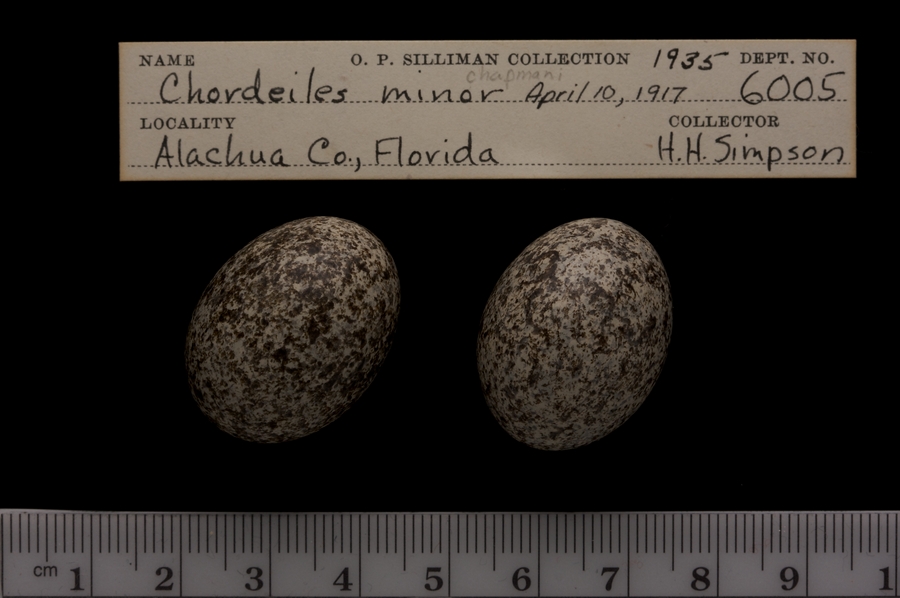 NAME O. P. SILLIMAN COLLECTION 1935 DEPT. NO.
chapmani
Chordeiles minor April 10, 1917 6005
LOCALITY COLLECTOR
Alachua Co., Florida H.H. Simpson
cm 1 2 3 4 5 6 7 8 9 1